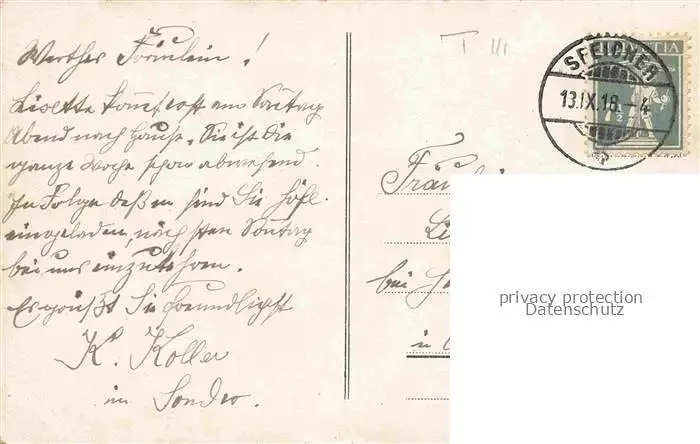 Werthes Fräulein!
Lisette kommt erst am Sontag
Abend nach Hause. Sie ist die
ganze Woche schon abwesend.
In Folge deßen sind Sie höfl.
eingeladen, nächsten Sontag
bei uns einzukehren.
Es grüßt Sie freundlichst
K. Koller
im Sonder.
T III
HELVETIA
SPEICHER
13.IX.18.-4
Fräu
Li
bei
in
privacy protection
Datenschutz